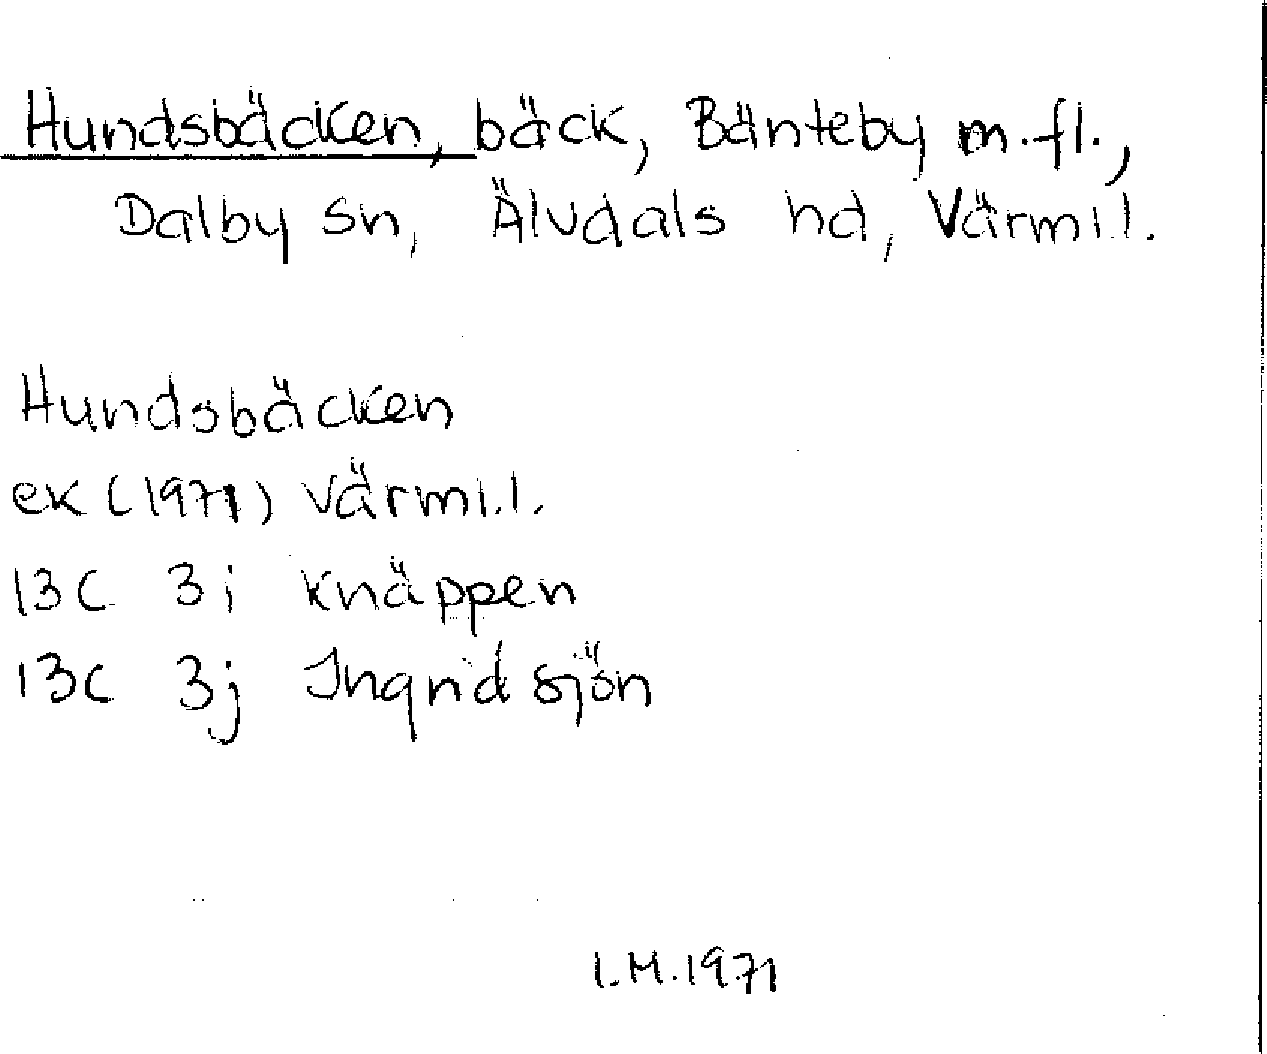 Hundsbäcken, bäck, Bänteby m.fl.,
Dalby sn, Älvdals hd, Värml.l.
Hundsbäcken
ek (1971) Värml.l.
13C 3i Knäppen
13C 3j Ingridsjön
I.M.1971